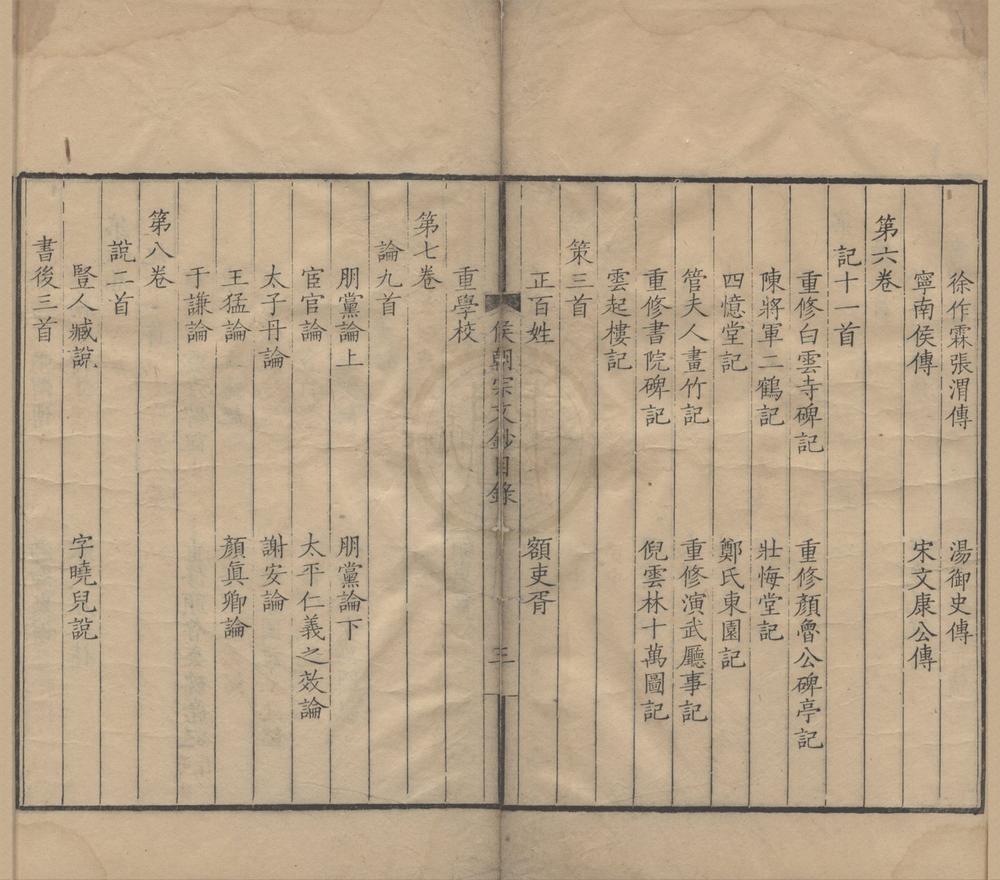 徐作霖張渭傳　湯御史傳
寧南侯傳　宋文康公傳
第六卷
記十一首
重修白雲寺碑記　重修顏魯公碑亭記
陳將軍二鶴記　壯悔堂記
四憶堂記　鄭氏東園記
管夫人畫竹記　重修演武廳事記
重修書院碑記　倪雲林十萬圖記
雲起樓記
策三首
正百姓　額吏胥
侯朝宗文鈔目錄　三
重學校
第七卷
論九首
朋黨論上　朋黨論下
宦官論　太平仁義之效論
太子丹論　謝安論
王猛論　顏眞卿論
于謙論
第八卷
說二首
豎人臧說　字曉兒說
書後三首